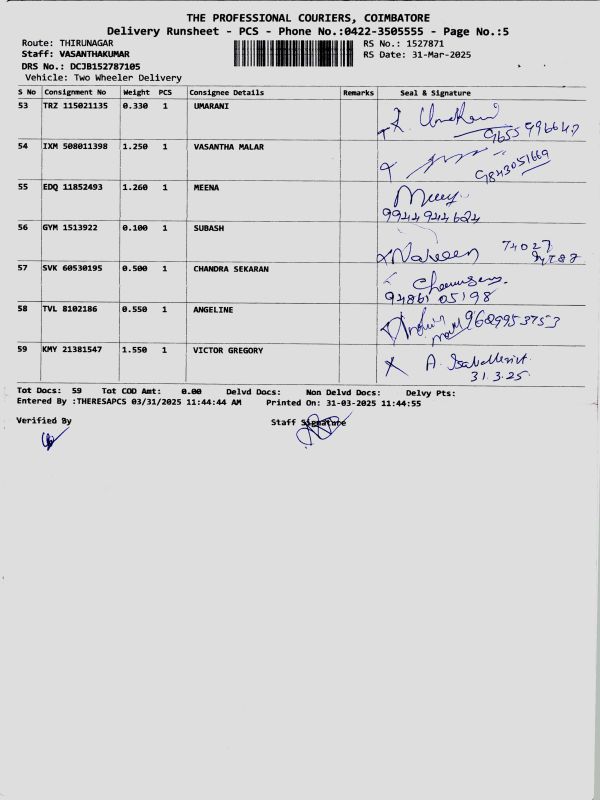 THE PROFESSIONAL COURIERS, COIMBATORE
Delivery Runsheet - PCS - Phone No.:0422-3505555 - Page No.:5
Route: THIRUNAGAR
RS No.: 1527871
Staff: VASANTHAKUMAR
RS Date: 31-Mar-2025
DRS No.: DCJB152787105
Vehicle: Two Wheeler Delivery
S No Consignment No Weight PCS Consignee Details Remarks Seal & Signature
53 TRZ 115021135 0.330 1 UMARANI
54 IXM 508011398 1.250 1 VASANTHA MALAR
9843051669
55 EDQ 11852493 1.260 1 MEENA
9944944624
56 GYM 1513922 0.100 1 SUBASH
Naveen 74027
57 SVK 60530195 0.500 1 CHANDRA SEKARAN
94861 05198
58 TVL 8102186 0.550 1 ANGELINE
9629953753
59 KMY 21381547 1.550 1 VICTOR GREGORY
31.3.25
Tot Docs: 59 Tot COD Amt: 0.00 Delvd Docs: Non Delvd Docs: Delvy Pts:
Entered By :THERESAPCS 03/31/2025 11:44:44 AM Printed On: 31-03-2025 11:44:55
Verified By
Staff Signature